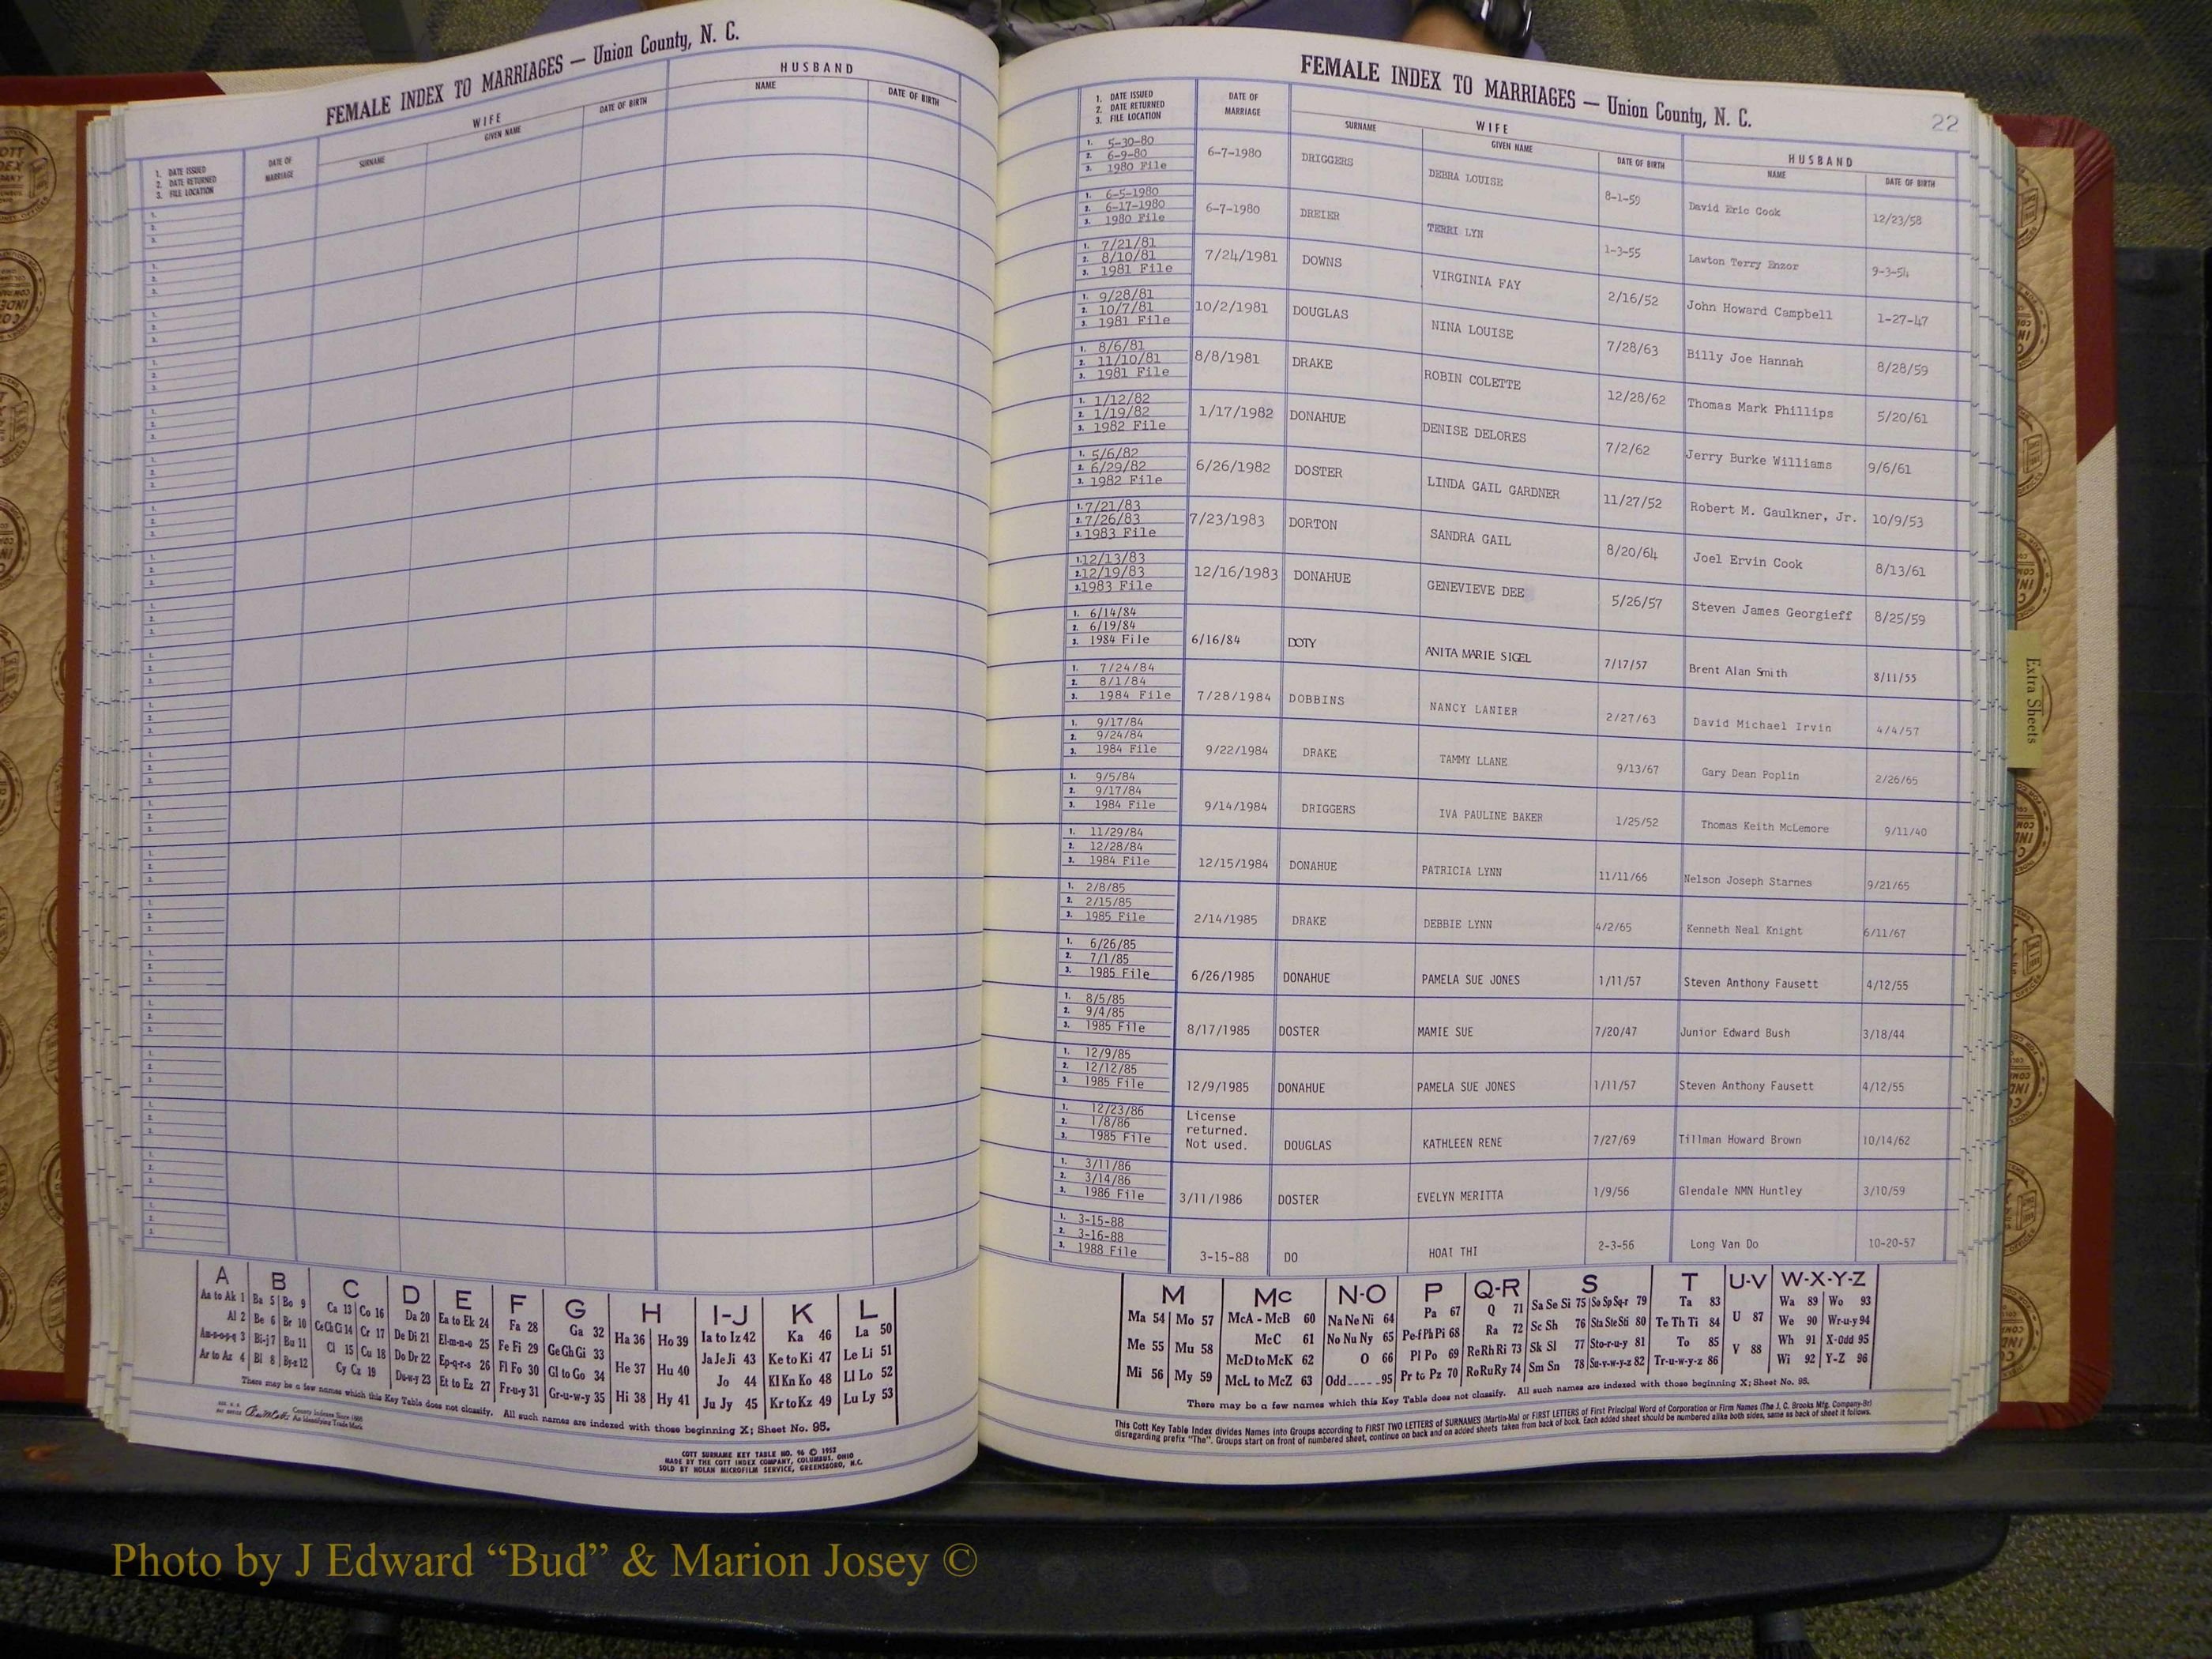 FEMALE INDEX TO MARRIAGES — Union County, N. C.
HUSBAND
WIFE
NAME
DATE OF BIRTH
GIVEN NAME
DATE OF BIRTH
SURNAME
DATE OF MARRIAGE
1. DATE ISSUED
2. DATE RETURNED
3. FILE LOCATION
A B C D E F G H I-J K L
Aa to Ak 1 Ba 5 Bo 9 Ca 13 Co 16 Da 20 Ea to Ek 24 Fa 28 Ga 32 Ha 36 Ho 39 Ia to Iz 42 Ka 46 La 50
Al 2 Be 6 Br 10 Ce Ch Ci 14 Cr 17 De Di 21 El-m-n-o 25 Fe Fi 29 Ge Gh Gi 33 He 37 Hu 40 Ja Je Ji 43 Ke to Ki 47 Le Li 51
Am-n-o-p-q 3 Bi-j 7 Bu 11 Cl 15 Cu 18 Do Dr 22 Ep-q-r-s 26 Fl Fo 30 Gl to Go 34 Hi 38 Hy 41 Jo 44 Kl Kn Ko 48 Ll Lo 52
Ar to Az 4 Bl 8 By-z 12 Cy Cz 19 Du-w-y 23 Et to Ez 27 Fr-u-y 31 Gr-u-w-y 35 Ju Jy 45 Kr to Kz 49 Lu Ly 53
There may be a few names which this Key Table does not classify. All such names are indexed with those beginning X; Sheet No. 95.
County Indexes Since 1888
An Identifying Trade Mark
COTT SURNAME KEY TABLE NO. 96 © 1952
MADE BY THE COTT INDEX COMPANY, COLUMBUS, OHIO
SOLD BY NOLAN MICROFILM SERVICE, GREENSBORO, N.C.
FEMALE INDEX TO MARRIAGES — Union County, N. C.
22
1. DATE ISSUED
2. DATE RETURNED
3. FILE LOCATION
DATE OF MARRIAGE
WIFE
SURNAME
GIVEN NAME
DATE OF BIRTH
HUSBAND
NAME
DATE OF BIRTH
1. 5-30-80
2. 6-9-80
3. 1980 File
6-7-1980 DRIGGERS DEBRA LOUISE 8-1-59 David Eric Cook 12/23/58
1. 6-5-1980
2. 6-17-1980
3. 1980 File
6-7-1980 DREIER TERRI LYN 1-3-55 Lawton Terry Enzor 9-3-54
1. 7/21/81
2. 8/10/81
3. 1981 File
7/24/1981 DOWNS VIRGINIA FAY 2/16/52 John Howard Campbell 1-27-47
1. 9/28/81
2. 10/7/81
3. 1981 File
10/2/1981 DOUGLAS NINA LOUISE 7/28/63 Billy Joe Hannah 8/28/59
1. 8/6/81
2. 11/10/81
3. 1981 File
8/8/1981 DRAKE ROBIN COLETTE 12/28/62 Thomas Mark Phillips 5/20/61
1. 1/12/82
2. 1/19/82
3. 1982 File
1/17/1982 DONAHUE DENISE DELORES 7/2/62 Jerry Burke Williams 9/6/61
1. 5/6/82
2. 6/29/82
3. 1982 File
6/26/1982 DOSTER LINDA GAIL GARDNER 11/27/52 Robert M. Gaulkner, Jr. 10/9/53
1. 7/21/83
2. 7/26/83
3. 1983 File
7/23/1983 DORTON SANDRA GAIL 8/20/64 Joel Ervin Cook 8/13/61
1. 12/13/83
2. 12/19/83
3. 1983 File
12/16/1983 DONAHUE GENEVIEVE DEE 5/26/57 Steven James Georgieff 8/25/59
1. 6/14/84
2. 6/19/84
3. 1984 File
6/16/84 DOTY ANITA MARIE SIGEL 7/17/57 Brent Alan Smith 8/11/55
1. 7/24/84
2. 8/1/84
3. 1984 File
7/28/1984 DOBBINS NANCY LANIER 2/27/63 David Michael Irvin 4/4/57
1. 9/17/84
2. 9/24/84
3. 1984 File
9/22/1984 DRAKE TAMMY LLANE 9/13/67 Gary Dean Poplin 2/26/65
1. 9/5/84
2. 9/17/84
3. 1984 File
9/14/1984 DRIGGERS IVA PAULINE BAKER 1/25/52 Thomas Keith McLemore 9/11/40
1. 11/29/84
2. 12/28/84
3. 1984 File
12/15/1984 DONAHUE PATRICIA LYNN 11/11/66 Nelson Joseph Starnes 9/21/65
1. 2/8/85
2. 2/15/85
3. 1985 File
2/14/1985 DRAKE DEBBIE LYNN 4/2/65 Kenneth Neal Knight 6/11/67
1. 6/26/85
2. 7/1/85
3. 1985 File
6/26/1985 DONAHUE PAMELA SUE JONES 1/11/57 Steven Anthony Fausett 4/12/55
1. 8/5/85
2. 9/4/85
3. 1985 File
8/17/1985 DOSTER MAMIE SUE 7/20/47 Junior Edward Bush 3/18/44
1. 12/9/85
2. 12/12/85
3. 1985 File
12/9/1985 DONAHUE PAMELA SUE JONES 1/11/57 Steven Anthony Fausett 4/12/55
1. 12/23/86
2. 1/8/86
3. 1985 File
License
returned.
Not used. DOUGLAS KATHLEEN RENE 7/27/69 Tillman Howard Brown 10/14/62
1. 3/11/86
2. 3/14/86
3. 1986 File
3/11/1986 DOSTER EVELYN MERITTA 1/9/56 Glendale NMN Huntley 3/10/59
1. 3-15-88
2. 3-16-88
3. 1988 File
3-15-88 DO HOAI THI 2-3-56 Long Van Do 10-20-57
Extra Sheets
M Mc N-O P Q-R S T U-V W-X-Y-Z
Ma 54 Mo 57 McA - McB 60 Na Ne Ni 64 Pa 67 Q 71 Sa Se Si 75 So Sp Sq-r 79 Ta 83 U 87 Wa 89 Wo 93
Me 55 Mu 58 McC 61 No Nu Ny 65 Pe-f Ph Pi 68 Ra 72 Sc Sh 76 Sta Ste Sti 80 Te Th Ti 84 V 88 We 90 Wr-u-y 94
Mi 56 My 59 McD to McK 62 O 66 Pl Po 69 Re Rh Ri 73 Sk Sl 77 Sto-r-u-y 81 To 85 Wh 91 X-Odd 95
McL to McZ 63 Odd 95 Pr to Pz 70 Ro Ru Ry 74 Sm Sn 78 Su-v-w-y-z 82 Tr-u-w-y-z 86 Wi 92 Y-Z 96
There may be a few names which this Key Table does not classify. All such names are indexed with those beginning X; Sheet No. 95.
This Cott Key Table Index divides Names into Groups according to FIRST TWO LETTERS of SURNAMES (Martin-Ma) or FIRST LETTERS of First Principal Word of Corporation or Firm Names (The J. C. Brooks Mfg. Company-Br)
disregarding prefix "The". Groups start on front of numbered sheet, continue on back and on added sheets taken from back of book. Each added sheet should be numbered alike both sides, same as back of sheet it follows.
Photo by J Edward “Bud” & Marion Josey ©